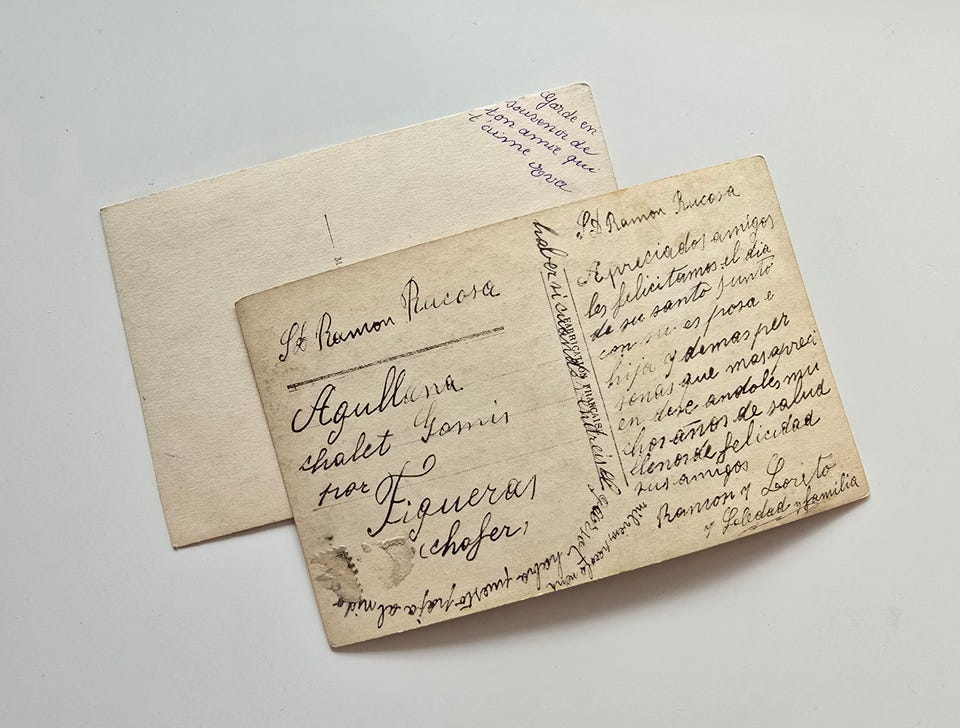 Garde en
souvenir de
ton amie qui
t'aime Eva
M
Sd Ramon Rucosa
Agullana
chalet Gomis
por
Figueras
(chofer)
Sd Ramon Rucosa
Apreciados amigos
les felicitamos el dia
de su santo junto
con su es posa e
hija y demas per
sonas que mas apreci
en dese andoles mu
chos años de salud
llenos de felicidad
sus amigos
Ramon y Lorito
y Soledad y familia
FABRICATION FRANÇAISE
haber si cuando
habra puesto paja al nido